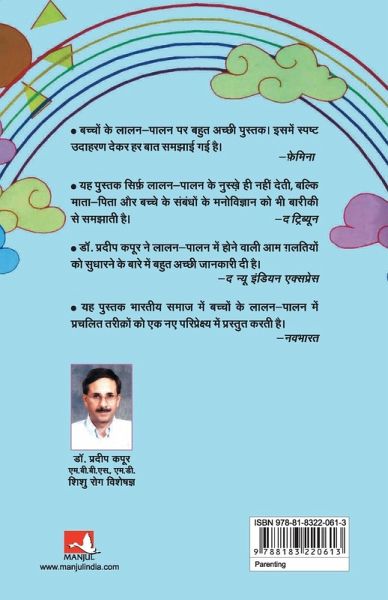 ● बच्चों के लालन–पालन पर बहुत अच्छी पुस्तक। इसमें स्पष्ट
उदाहरण देकर हर बात समझाई गई है।
–फ़ेमिना
● यह पुस्तक सिर्फ़ लालन–पालन के नुस्ख़े ही नहीं देती, बल्कि
माता–पिता और बच्चे के संबंधों के मनोविज्ञान को भी बारीकी
से समझाती है।
–द ट्रिब्यून
● डॉ. प्रदीप कपूर ने लालन–पालन में होने वाली आम ग़लतियों
को सुधारने के बारे में बहुत अच्छी जानकारी दी है।
–द न्यू इंडियन एक्सप्रेस
● यह पुस्तक भारतीय समाज में बच्चों के लालन–पालन में
प्रचलित तरीक़ों को एक नए परिप्रेक्ष्य में प्रस्तुत करती है।
–नवभारत
डॉ. प्रदीप कपूर
एम.बी.बी.एस., एम.डी.
शिशु रोग विशेषज्ञ
MANJUL
www.manjulindia.com
ISBN 978-81-8322-061-3
9 788183 220613
Parenting